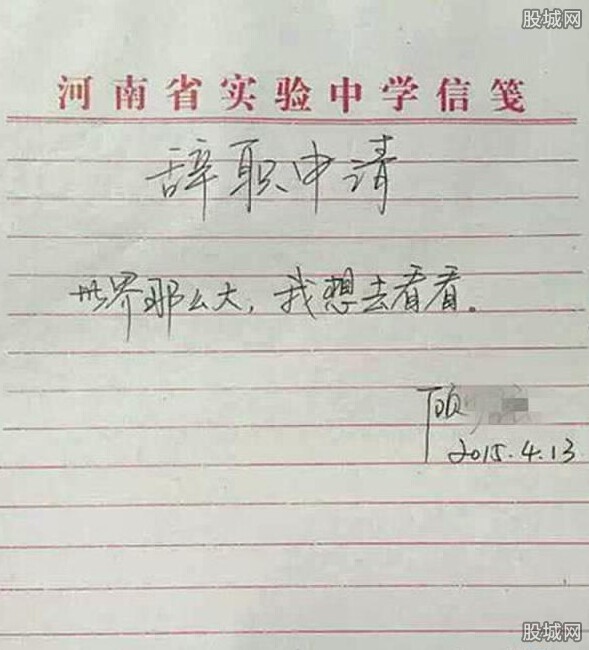 股城网
河南省实验中学信笺
辞职申请
世界那么大，我想去看看。
顾
2015.4.13
股城网